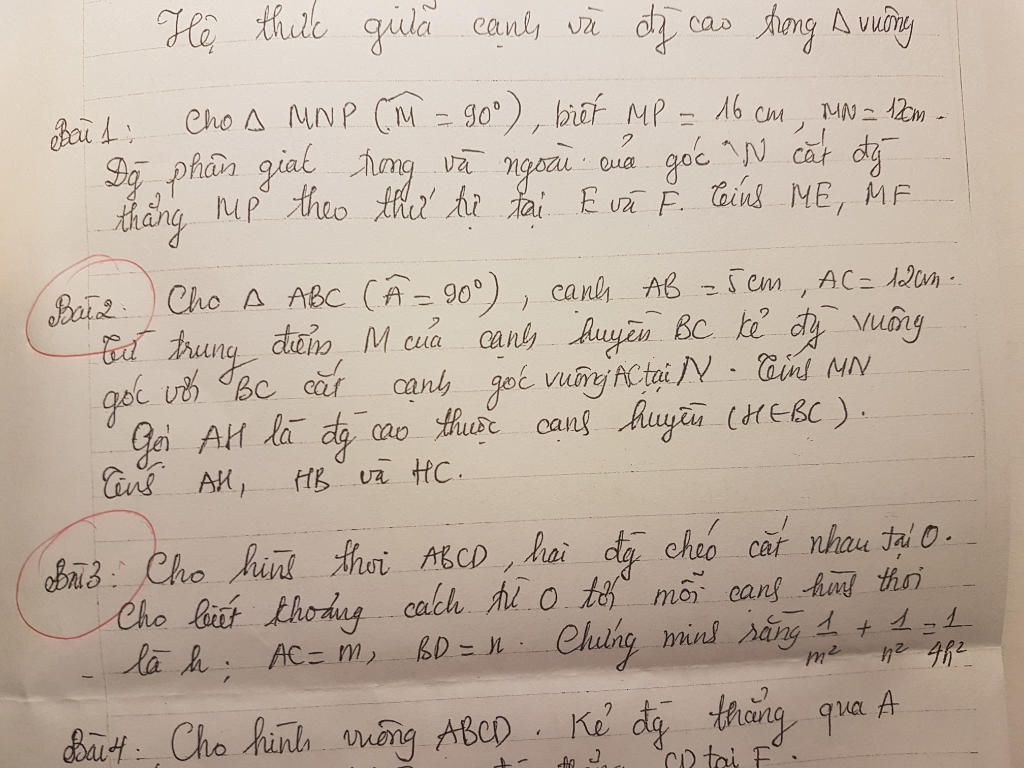 Hệ thức giữa cạnh và đg cao trong Δ vuông
Bài 1: Cho Δ MNP (M̂ = 90°), biết MP = 16 cm, MN = 12cm.
Đg phân giác trong và ngoài của góc N cắt đg
thẳng MP theo thứ tự tại E và F. Tính ME, MF
Bài 2: Cho Δ ABC (Â = 90°), cạnh AB = 5cm, AC = 12cm.
Từ trung điểm M của cạnh huyền BC kẻ đg vuông
góc với BC cắt cạnh góc vuông AC tại N. Tính MN
Gọi AH là đg cao thuộc cạnh huyền (H∈BC).
Tính AH, HB và HC.
Bài 3: Cho hình thoi ABCD, hai đg chéo cắt nhau tại O.
Cho biết khoảng cách từ O tới mỗi cạnh hình thoi
là h; AC = m, BD = n. Chứng minh rằng 1/m² + 1/n² = 1/4h²
Bài 4: Cho hình vuông ABCD. Kẻ đg thẳng qua A
CD tại F.